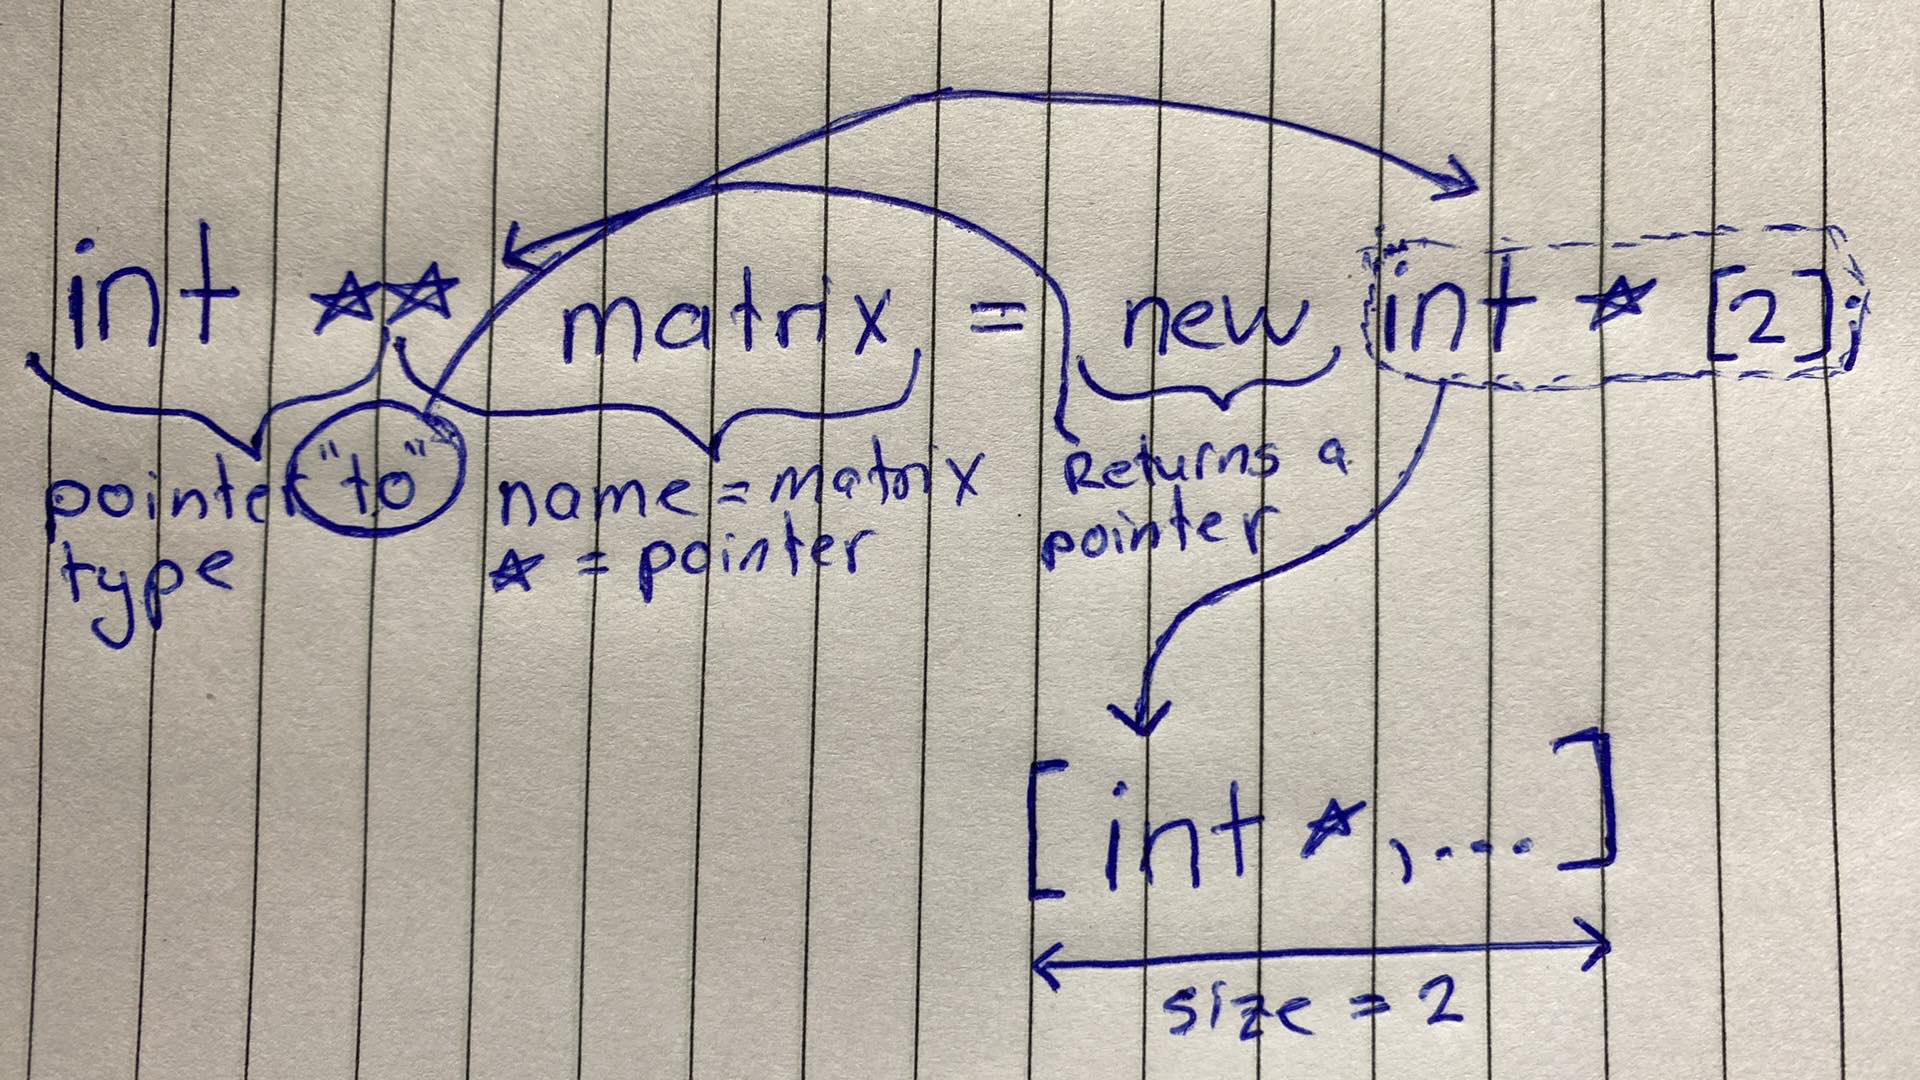 int ** matrix = new int * [2];
pointer "to"
type
name = matrix
* = pointer
Returns a
pointer
[int *, ....]
size = 2